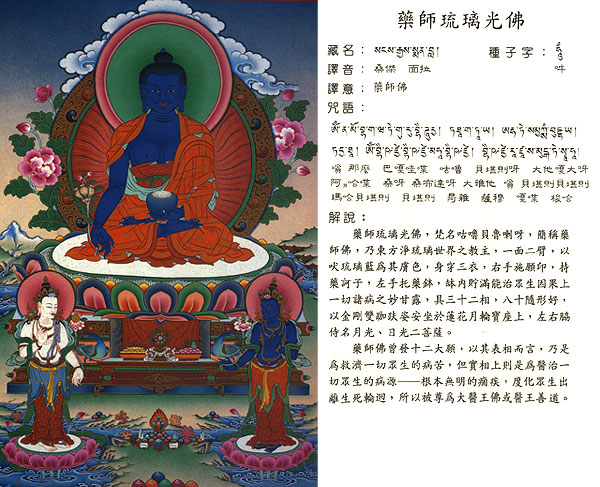 藥師琉璃光佛
藏名：སངས་རྒྱས་སྨན་བླ། 種子字：
譯音：桑傑 面拉 吽
譯意：藥師佛
咒語：
嗡 那麼 巴嘎哇堞 咕嚕 貝堪則呀 大他嘎大呀
阿 哈堞 桑呀 桑布達呀 大雅他 嗡 貝堪則貝堪則
瑪哈貝堪則 貝堪則 局雜 薩穆 嘎堞 梭哈
解說：
藥師琉璃光佛，梵名咕嚕貝魯喇呀，簡稱藥
師佛，乃東方淨琉璃世界之教主，一面二臂，以
吠琉璃藍為其膚色，身穿三衣，右手施願印，持
藥訶子，左手托藥鉢，缽內貯滿能治眾生因果上
一切諸病之妙甘露，具三十二相，八十隨形好，
以金剛雙跏趺姿安坐於蓮花月輪寶座上，左右脇
侍名月光、日光二菩薩。
藥師佛曾發十二大願，以其表相而言，乃是
為救濟一切眾生的病苦，但實相上則是為醫治一
切眾生的病源——根本無明的痼疾，度化眾生出
離生死輪迴，所以被尊為大醫王佛或醫王善道。